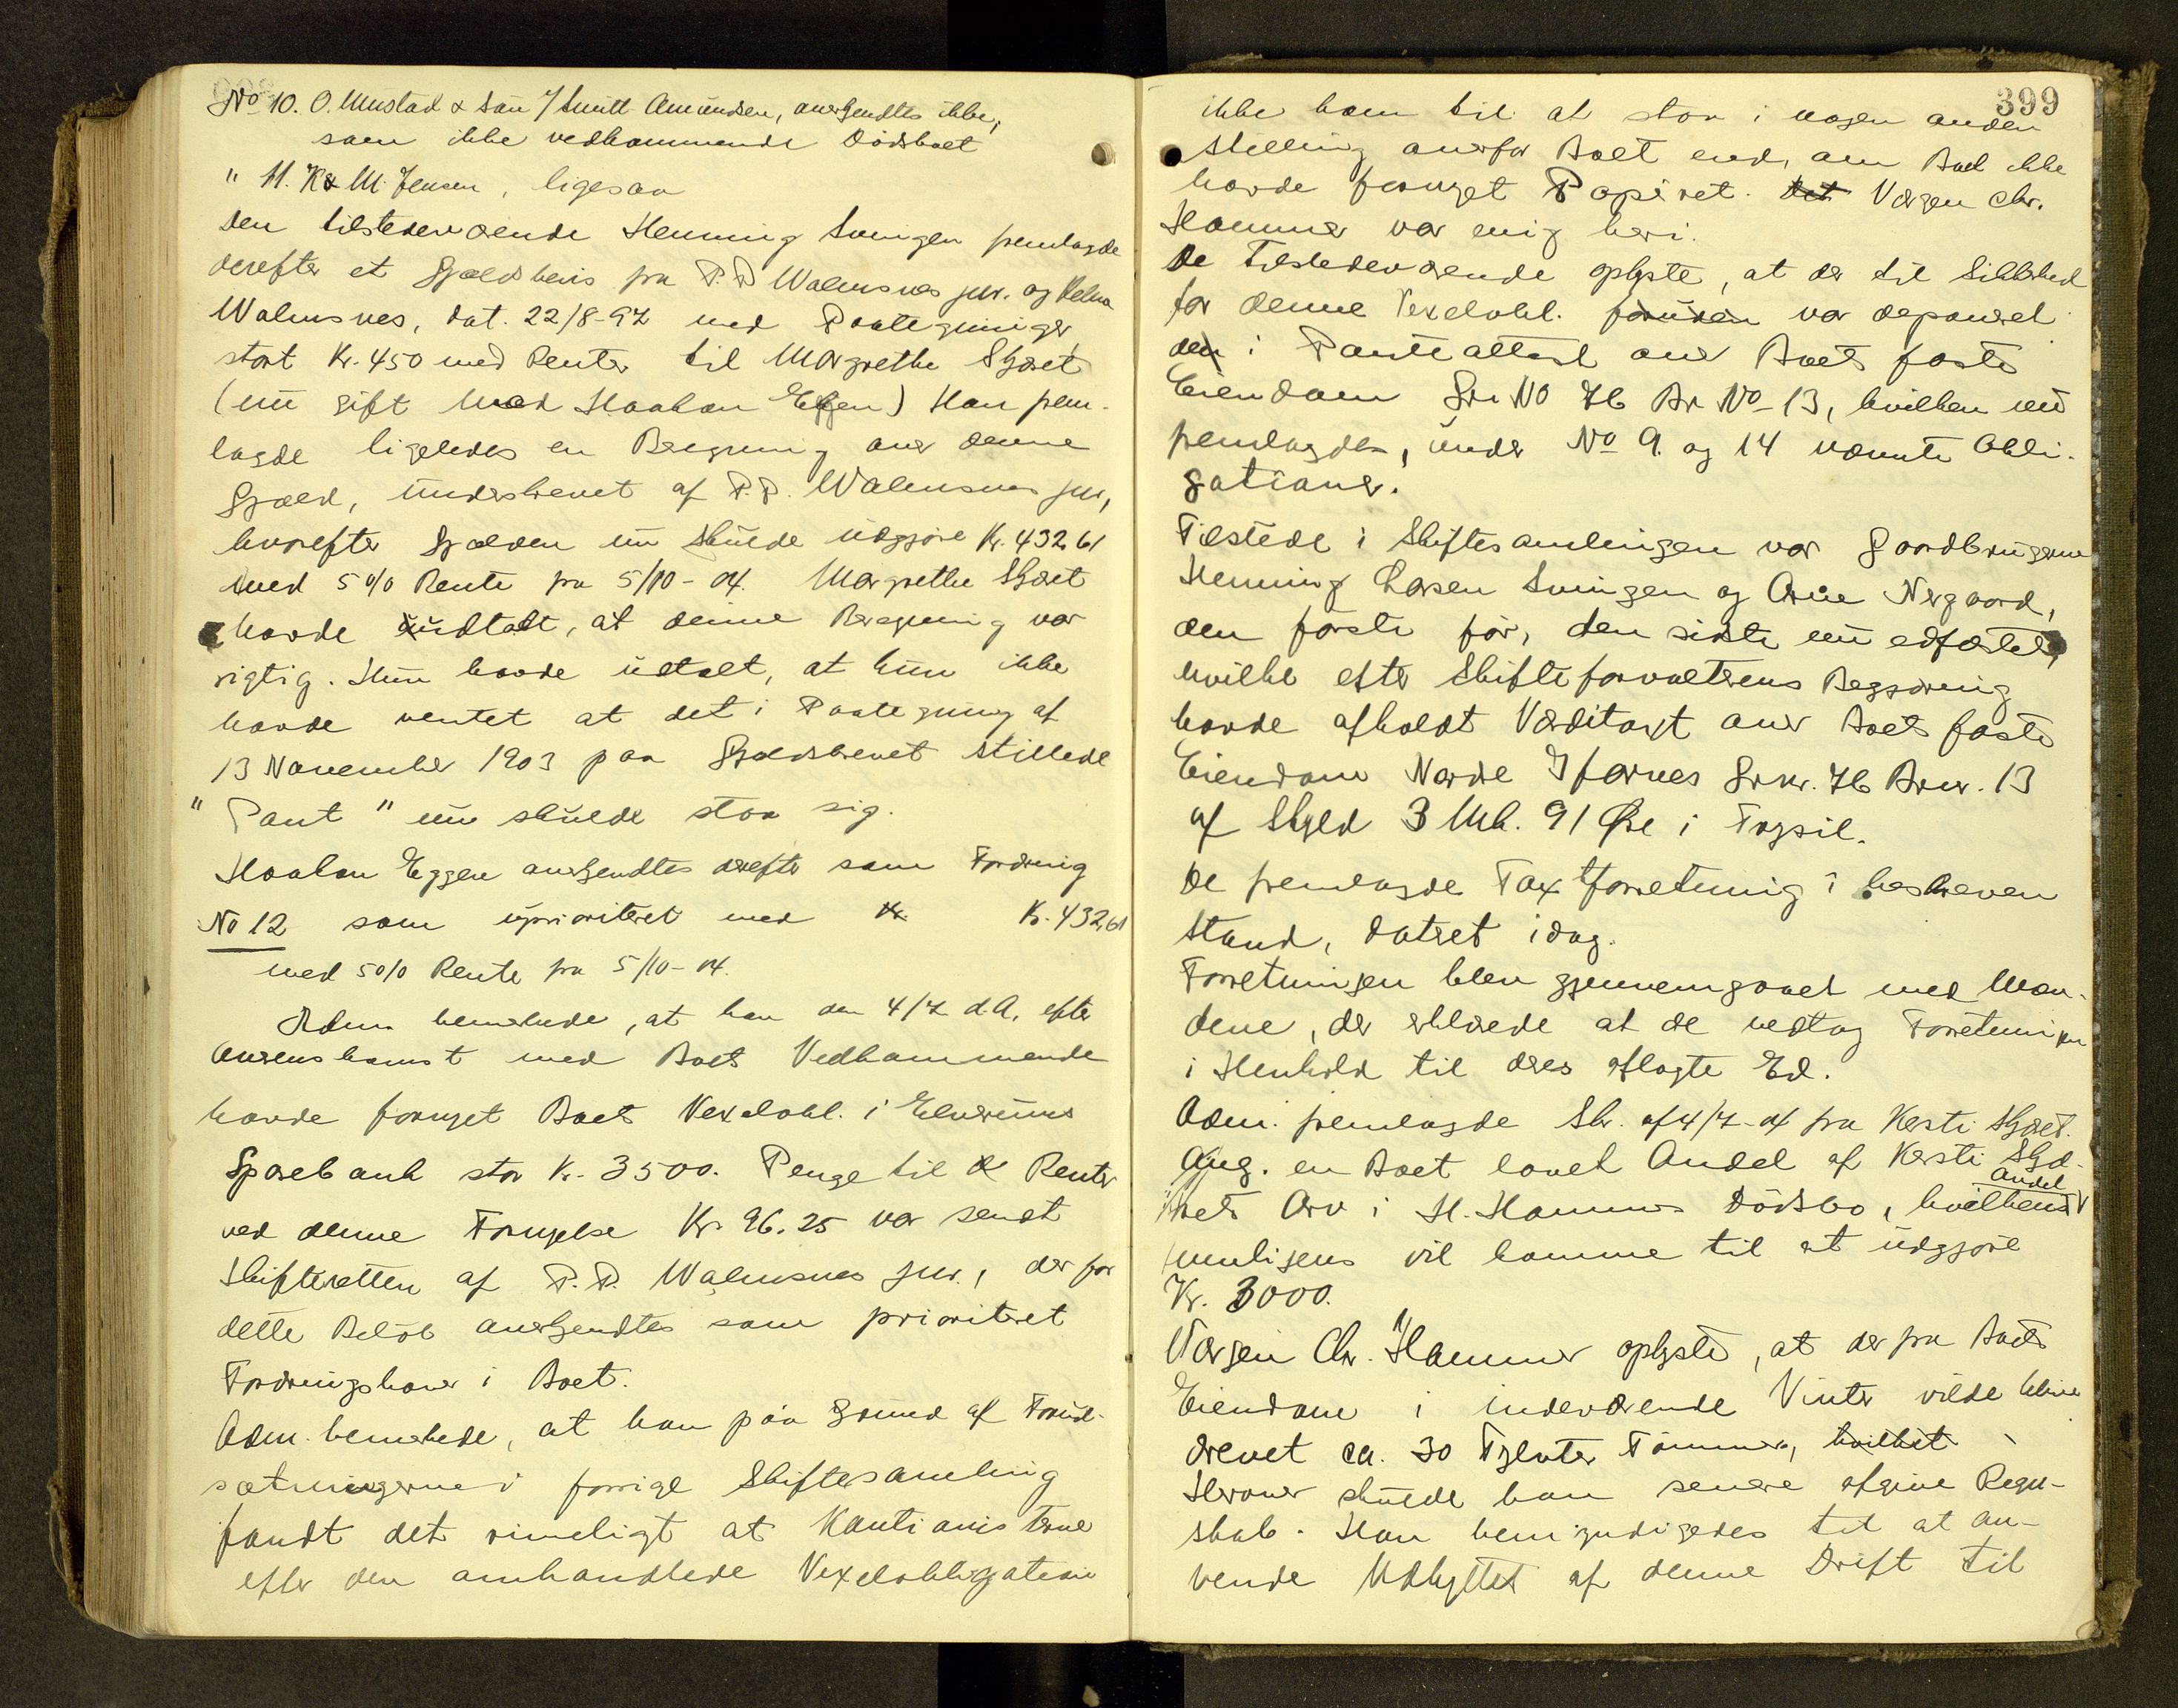 No 10. O. Mustad & Søn / Smitt Amundsen, anerkjendtes ikke,
som ikke vedkommende Dödsboet
" 11. K & M. Jensen, ligesaa
Den tilstedeværende Henning Svingen fremlagde
derefter et Gjældsbevis fra P. P. Walmsnes jur. og
Walmsnes, dat. 22/8-97 med Paategninger,
stort Kr. 450 med Renter til Margrethe Skjæret
(nu gift med Haakon Eggen) Han frem-
lagde ligeledes en Beregning over denne
Gjæld, underskrevet af P. P. Walmsnes jur,
hvorefter Gjælden nu skulde udgjøre Kr. 432,61
med 5 o/o Rente fra 5/10-04. Margrethe Skjæret
havde udtalt, at denne Beregning var
rigtig. Hun havde udtalt, at hun ikke
havde ventet at det i Paategning af
13 November 1903 paa Gjældsbrevet stillede
"Pant" nu skulde staa sig.
Haakon Eggen anerkjendtes derefter som Fordring
No 12 som uprioriteret med Kr. Kr. 432,61
med 5 o/o Rente fra 5/10-04.
Adm. bemærkede, at han den 4/7 d.A. efter
Overenskomst med Boets Vedkommende
havde fornyet Boets Vexelobl. i Elverums
Sparebank stor Kr. 3500. Penge til Renter
ved denne Fornyelse Kr. 96.25 var sendt
Skifteretten af P. P. Walmsnes jur., der for
dette Beløb anerkjendtes som prioriteret
Fordringshaver i Boet.
Adm. bemærkede, at han paa Grund af Forud-
sætningerne i forrige Skiftesamling
fandt det rimeligt at Kautionisterne
efter den omhandlede Vexelobligation
399
ikke kom til at staa i nogen anden
Stilling overfor Boet end, om Boet ikke
havde fornyet Papiret. Det Værgen Chr.
Hammer var enig heri.
De Tilstedeværende oplyste, at der til Sikkerhed
for denne Vexelobl. foruden var deponeret
den i Panteattest over Boets faste
Eiendom Gr. No 76 Br. No 13, hvilken nu
fremlagdes, under No 9. og 14 nævnte Obli-
gationer.
Tilstede i Skiftesamlingen var Gaardbrugerne
Henning Larsen Svingen og Arne Nergaard,
den første før, den sidste nu edfæstet,
hvilke efter Skifteforvalterens Begjæring
havde afholdt Værditaxt over Boets faste
Eiendom Nordre Grnr. 76 Brnr. 13
af Skyld 3 Mk. 91 Øre i Trysil.
De fremlagde Taxtforretning i beskreven
Stand, dateret idag.
Forretningen blev gjennemgaaet med Mæn-
dene, der erklærede at de vedtog Forretningen
i Henhold til deres aflagte Ed.
Adm. fremlagde Skr. af 4/7-04 fra Kersti Skjæret.
Ang. en Boet lovet Andel af Kersti Skjæ-
rets Arv i H. Hammers Dödsbo, hvilken Andel
muligens vil komme til at udgjøre
Kr. 3000.
Værgen Chr. Hammer oplyste, at der fra Boets
Eiendom i indeværende Vinter vilde blive
drevet ca. 30 Tylvter Tømmer, hvilket
Herover skulde han senere afgive Regn-
skab. Han bemyndigedes til at an-
vende Udbyttet af denne Drift til